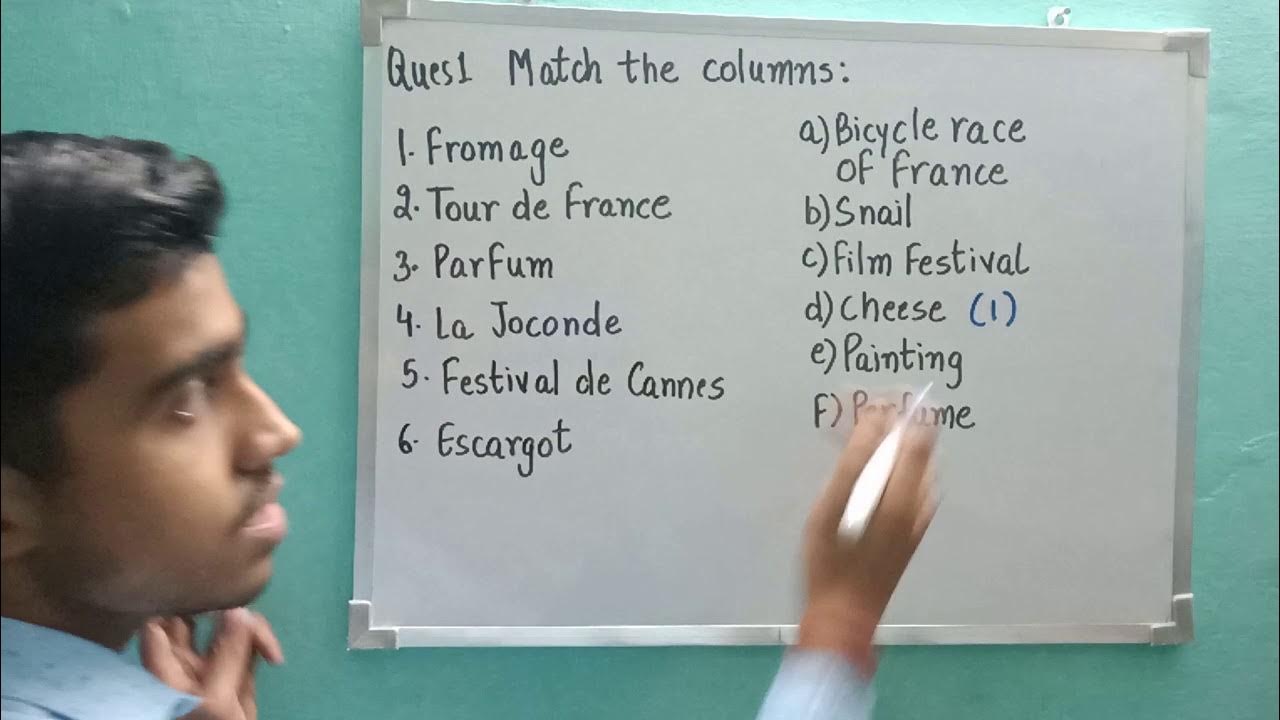 Ques1 Match the columns:
1. Fromage
2. Tour de France
3. Parfum
4. La Joconde
5. Festival de Cannes
6. Escargot
a) Bicycle race
of France
b) Snail
c) Film Festival
d) Cheese (1)
e) Painting
F) Perfume